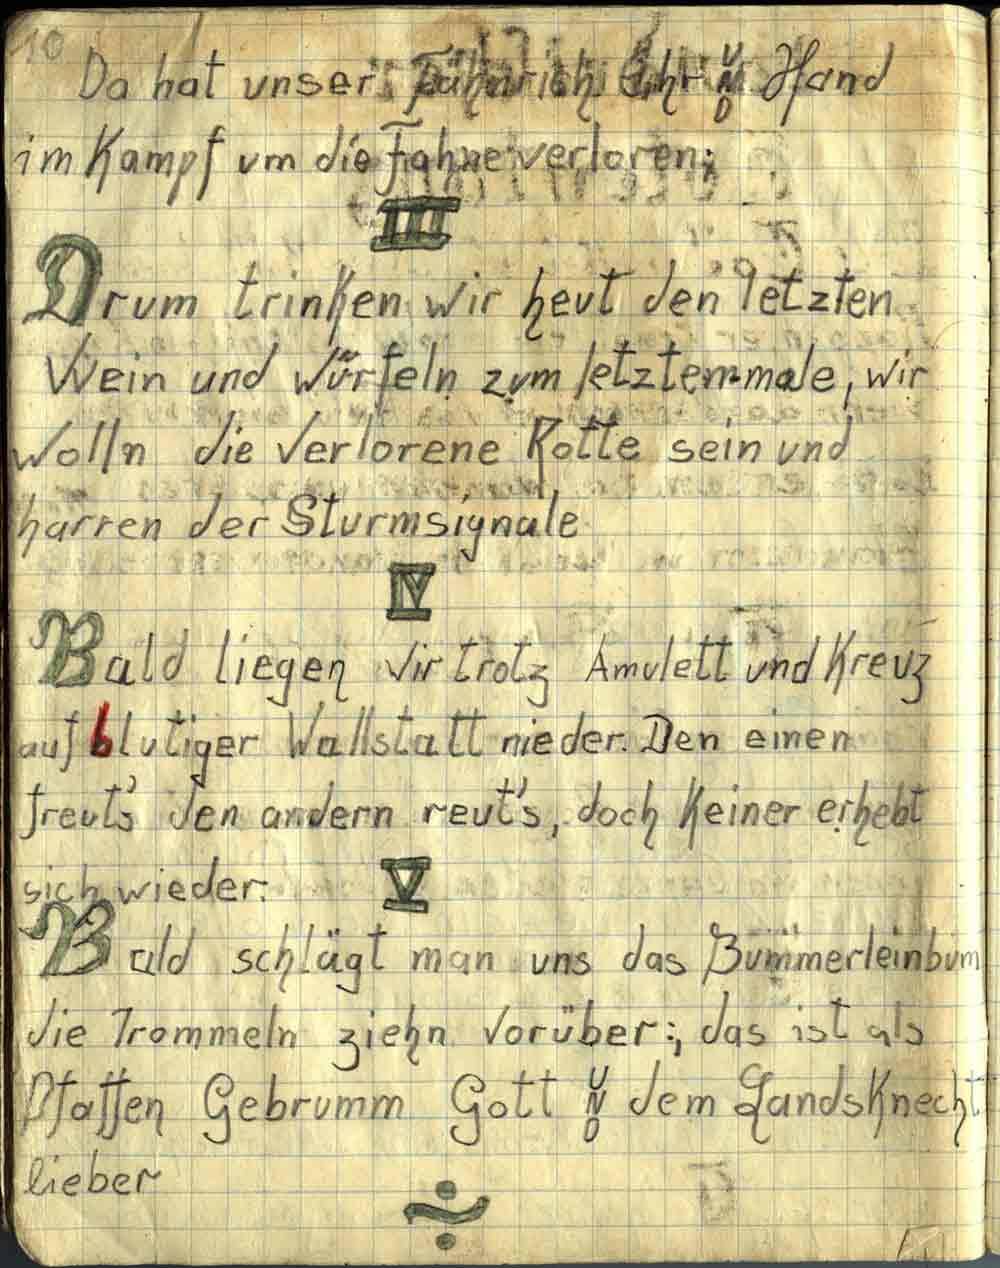 10
Da hat unser Fähnrich Ehr UND Hand
im Kampf um die Fahne verloren;
III
Drum trinken wir heut den letzten
Wein und würfeln zum letztem-male, wir
wolln die verlorene Rotte sein und
harren der Sturmsignale
IV
Bald liegen wir trotz Amulett und Kreuz
auf blutiger Wallstatt nieder. Den einen
freut's den andern reut's, doch keiner erhebt
sich wieder.
V
Bald schlägt man uns das Bummerleinbum
die Trommeln ziehn vorüber:, das ist als
Pfaffen Gebrumm Gott UND dem Landsknecht
lieber